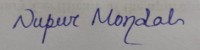 Nupur Mondal